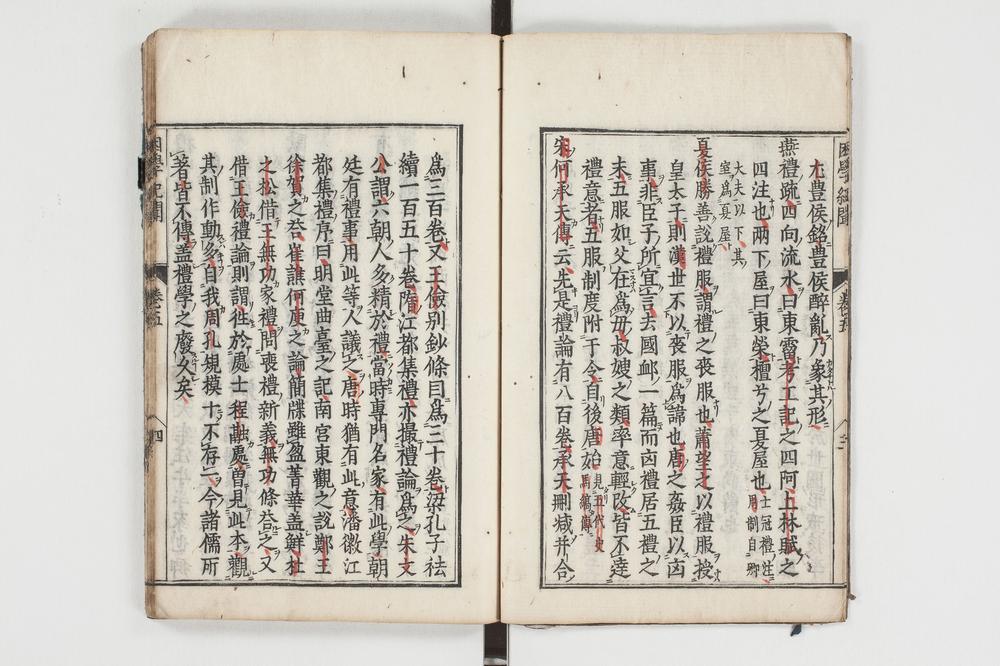 困學紀聞
卷五
三
尢豊侯銘豊侯醉亂乃象其形
燕禮疏四向流水曰東霤考工記之四阿上林賦之
四注也兩下屋曰東榮檀弓之夏屋也士冠禮注周制自卿
大夫以下其室爲夏屋
夏侯勝善説禮服謂禮之喪服也蕭望之以禮服授
皇太子則漢世不以喪服爲諱也唐之姦臣以凶
事非臣子所宜言去國䘏一篇而凶禮居五禮之
末五服如父在爲母叔嫂之類率意輕改皆不達
禮意者五服制度附于令自後唐始見五代史馬縞傳
宋何承天傳云先是禮論有八百卷承天刪减并合
爲三百卷又王儉别鈔條目爲三十卷梁孔子祛
續一百五十卷隋江都集禮亦撮禮論爲之朱文
公謂六朝人多精於禮當時專門名家有此學朝
廷有禮事用此等人議之唐時猶有此意潘徽江
都集禮序曰明堂曲臺之記南宮東觀之説鄭王
徐賀之荅崔譙何庾之論簡牒雖盈菁華盖鮮杜
之松借王無功家禮問喪禮新義無功條荅之又
借王儉禮論則謂往於處士程融處曽見此本觀
其制作動多自我周孔規模十不存一今諸儒所
著皆不傳盖禮學之廢久矣
困學紀聞
卷五
四